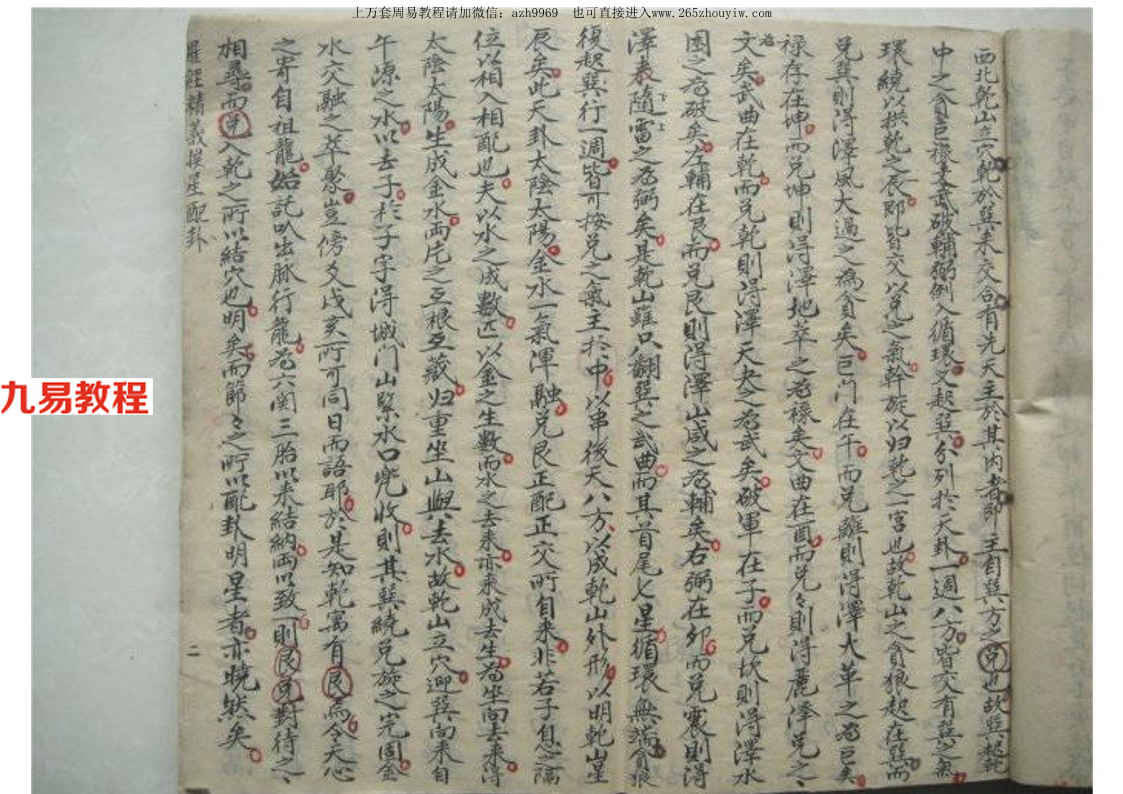 上万套周易教程请加微信：azh9969　也可直接进入www.265zhouyiw.com
九易教程
西北乾山立穴乾於巽來交合有先天主於其內者即主有巽方之兌也故巽起乾
中之貪巨祿文武破輔弼倒入循環又起巽分列於天卦一週八方皆交有巽之氣
環繞以拱乾之辰即皆交以兌之氣斡旋以归乾之一宮也故乾山之貪狼起在巽而
兌巽則得澤風大過之為貪矣巨门在午而兌離則得澤火革之為巨矣
祿存在坤而兌坤則得澤地萃之為祿矣文曲在酉而兌々則得麗澤兌之々為
文矣武曲在乾而兌乾則得澤天夬之為武矣破軍在子而兌坎則得澤水
困之為破矣左輔在艮而兌艮則得澤山咸之為輔矣右弼在卯而兌震則得
澤天隨雷之為弼矣是乾山雖只翻巽之武曲而其首尾七星循環無端貪狼
復起巽行一週皆可按兌之氣主於中以串後天八方以成乾山外形以明乾山星
辰矣此天卦太陰太陽金水一氣渾融兌艮正配正交所自來非若子息之隔
位以相入相配也夫以水之成數匹以金之生數而水之去來亦来成去生為坐向去來得
太陰太陽生成金水两片之互根互藏归重坐山與去水故乾山立穴迎巽向来自
午源之水以去子於子字得城門山緊水口兜收則其巽繞兌旋之完固金
水穴融之萃聚豈傍爻戌亥所可同日而語耶於是知乾寓有艮焉今天心
之寄自祖龍始託以出脉行龍為六関三胎以来結納两以致一則艮兌對待之々
相尋而单入乾之所以結穴也明矣而節々之所以配卦明星者亦曉然矣
羅經精義撥星配卦
二